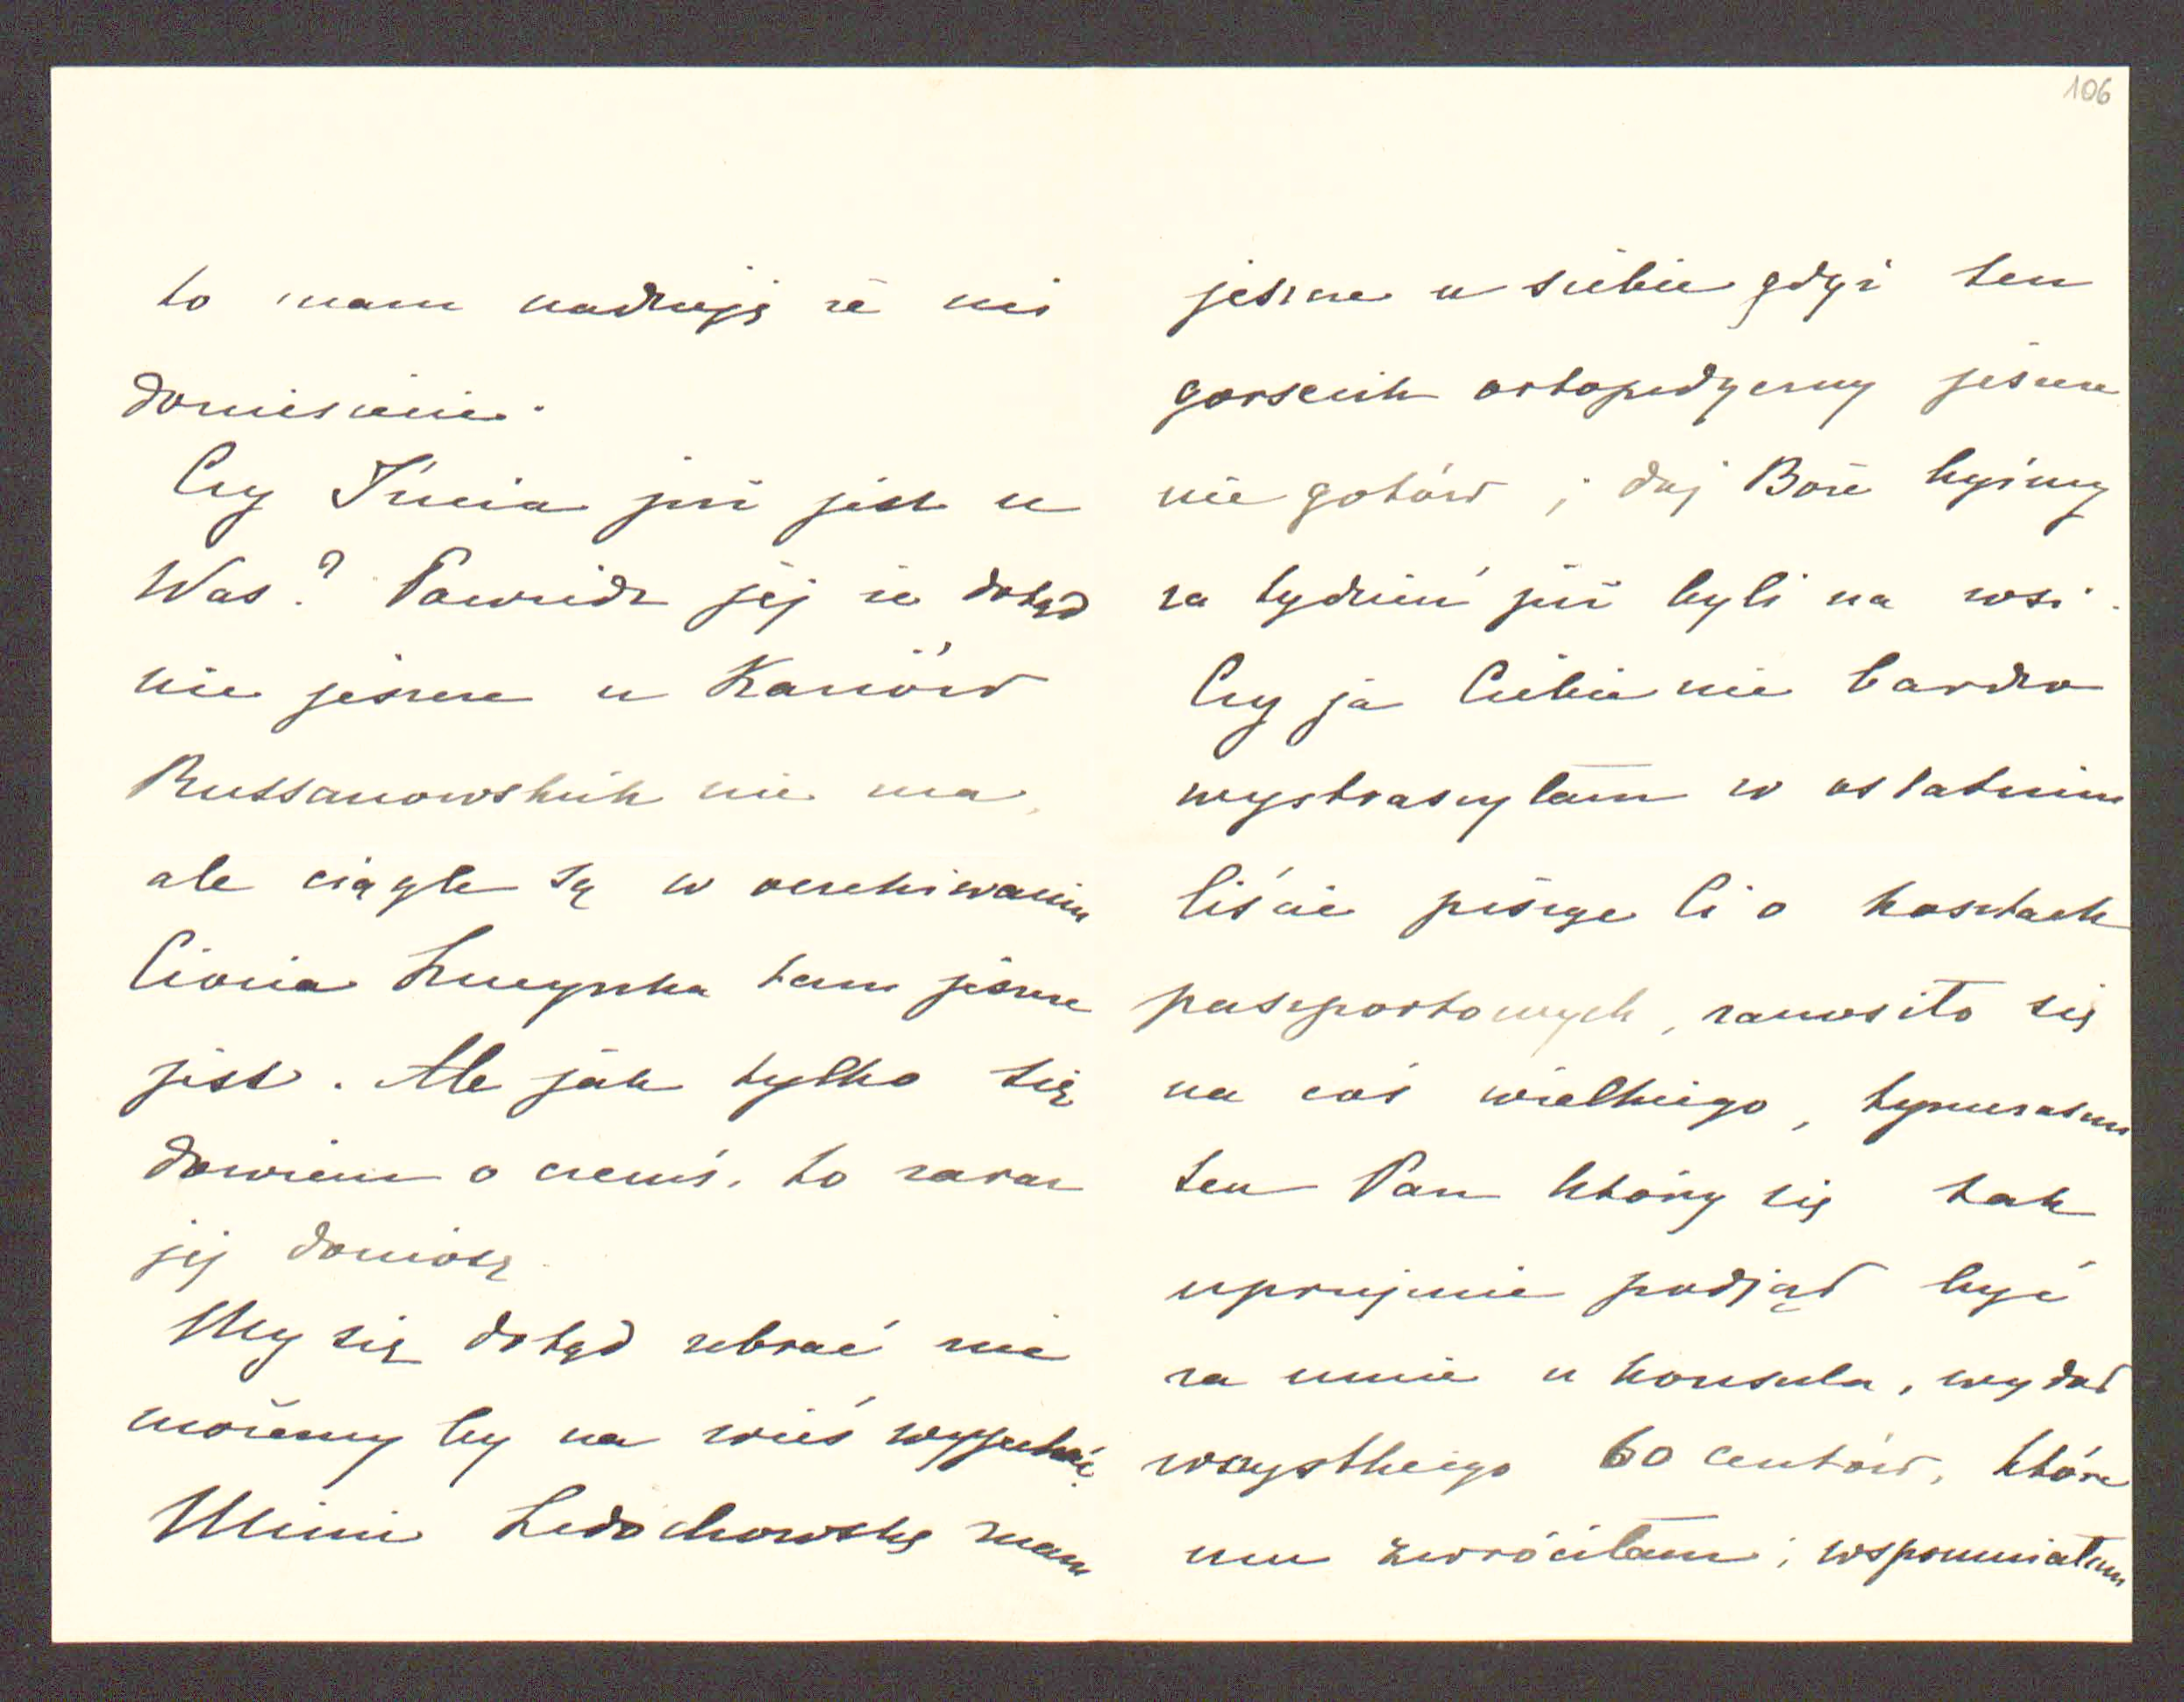 106
to mam nadzieję że mi
doniesienie.
Czy Inia już jest u
Was? Powiedz jej że dotąd
nie jeszcze u Kaziów
Russanowskich nie ma,
ale ciągle są w oczekiwaniu
Ciocia Luczynka tam jeszcze
jest. Ale jak tylko się
dowiem o czemś, to zaraz
jej doniosę.
My się dotąd zebrać nie
możemy by na wieś wyjechać.
Mimi Ledochowską mam
jeszcze u siebie gdyż ten
gorsecik ortopedyczny jeszcze
nie gotów; daj Boże byśmy
za tydzień już byli na wsi.
Czy ja Ciebie nie bardzo
wystraszyłam w ostatnim
liście pisząc Ci o kosztach
paszportowych, zanosiło się
na coś wielkiego, tymczasem
ten Pan który się tak
uprzejmie podjął być
za mnie u konsula, wydał
wszystkiego 60 centów, które
mu zwróciłam; wspomniałam